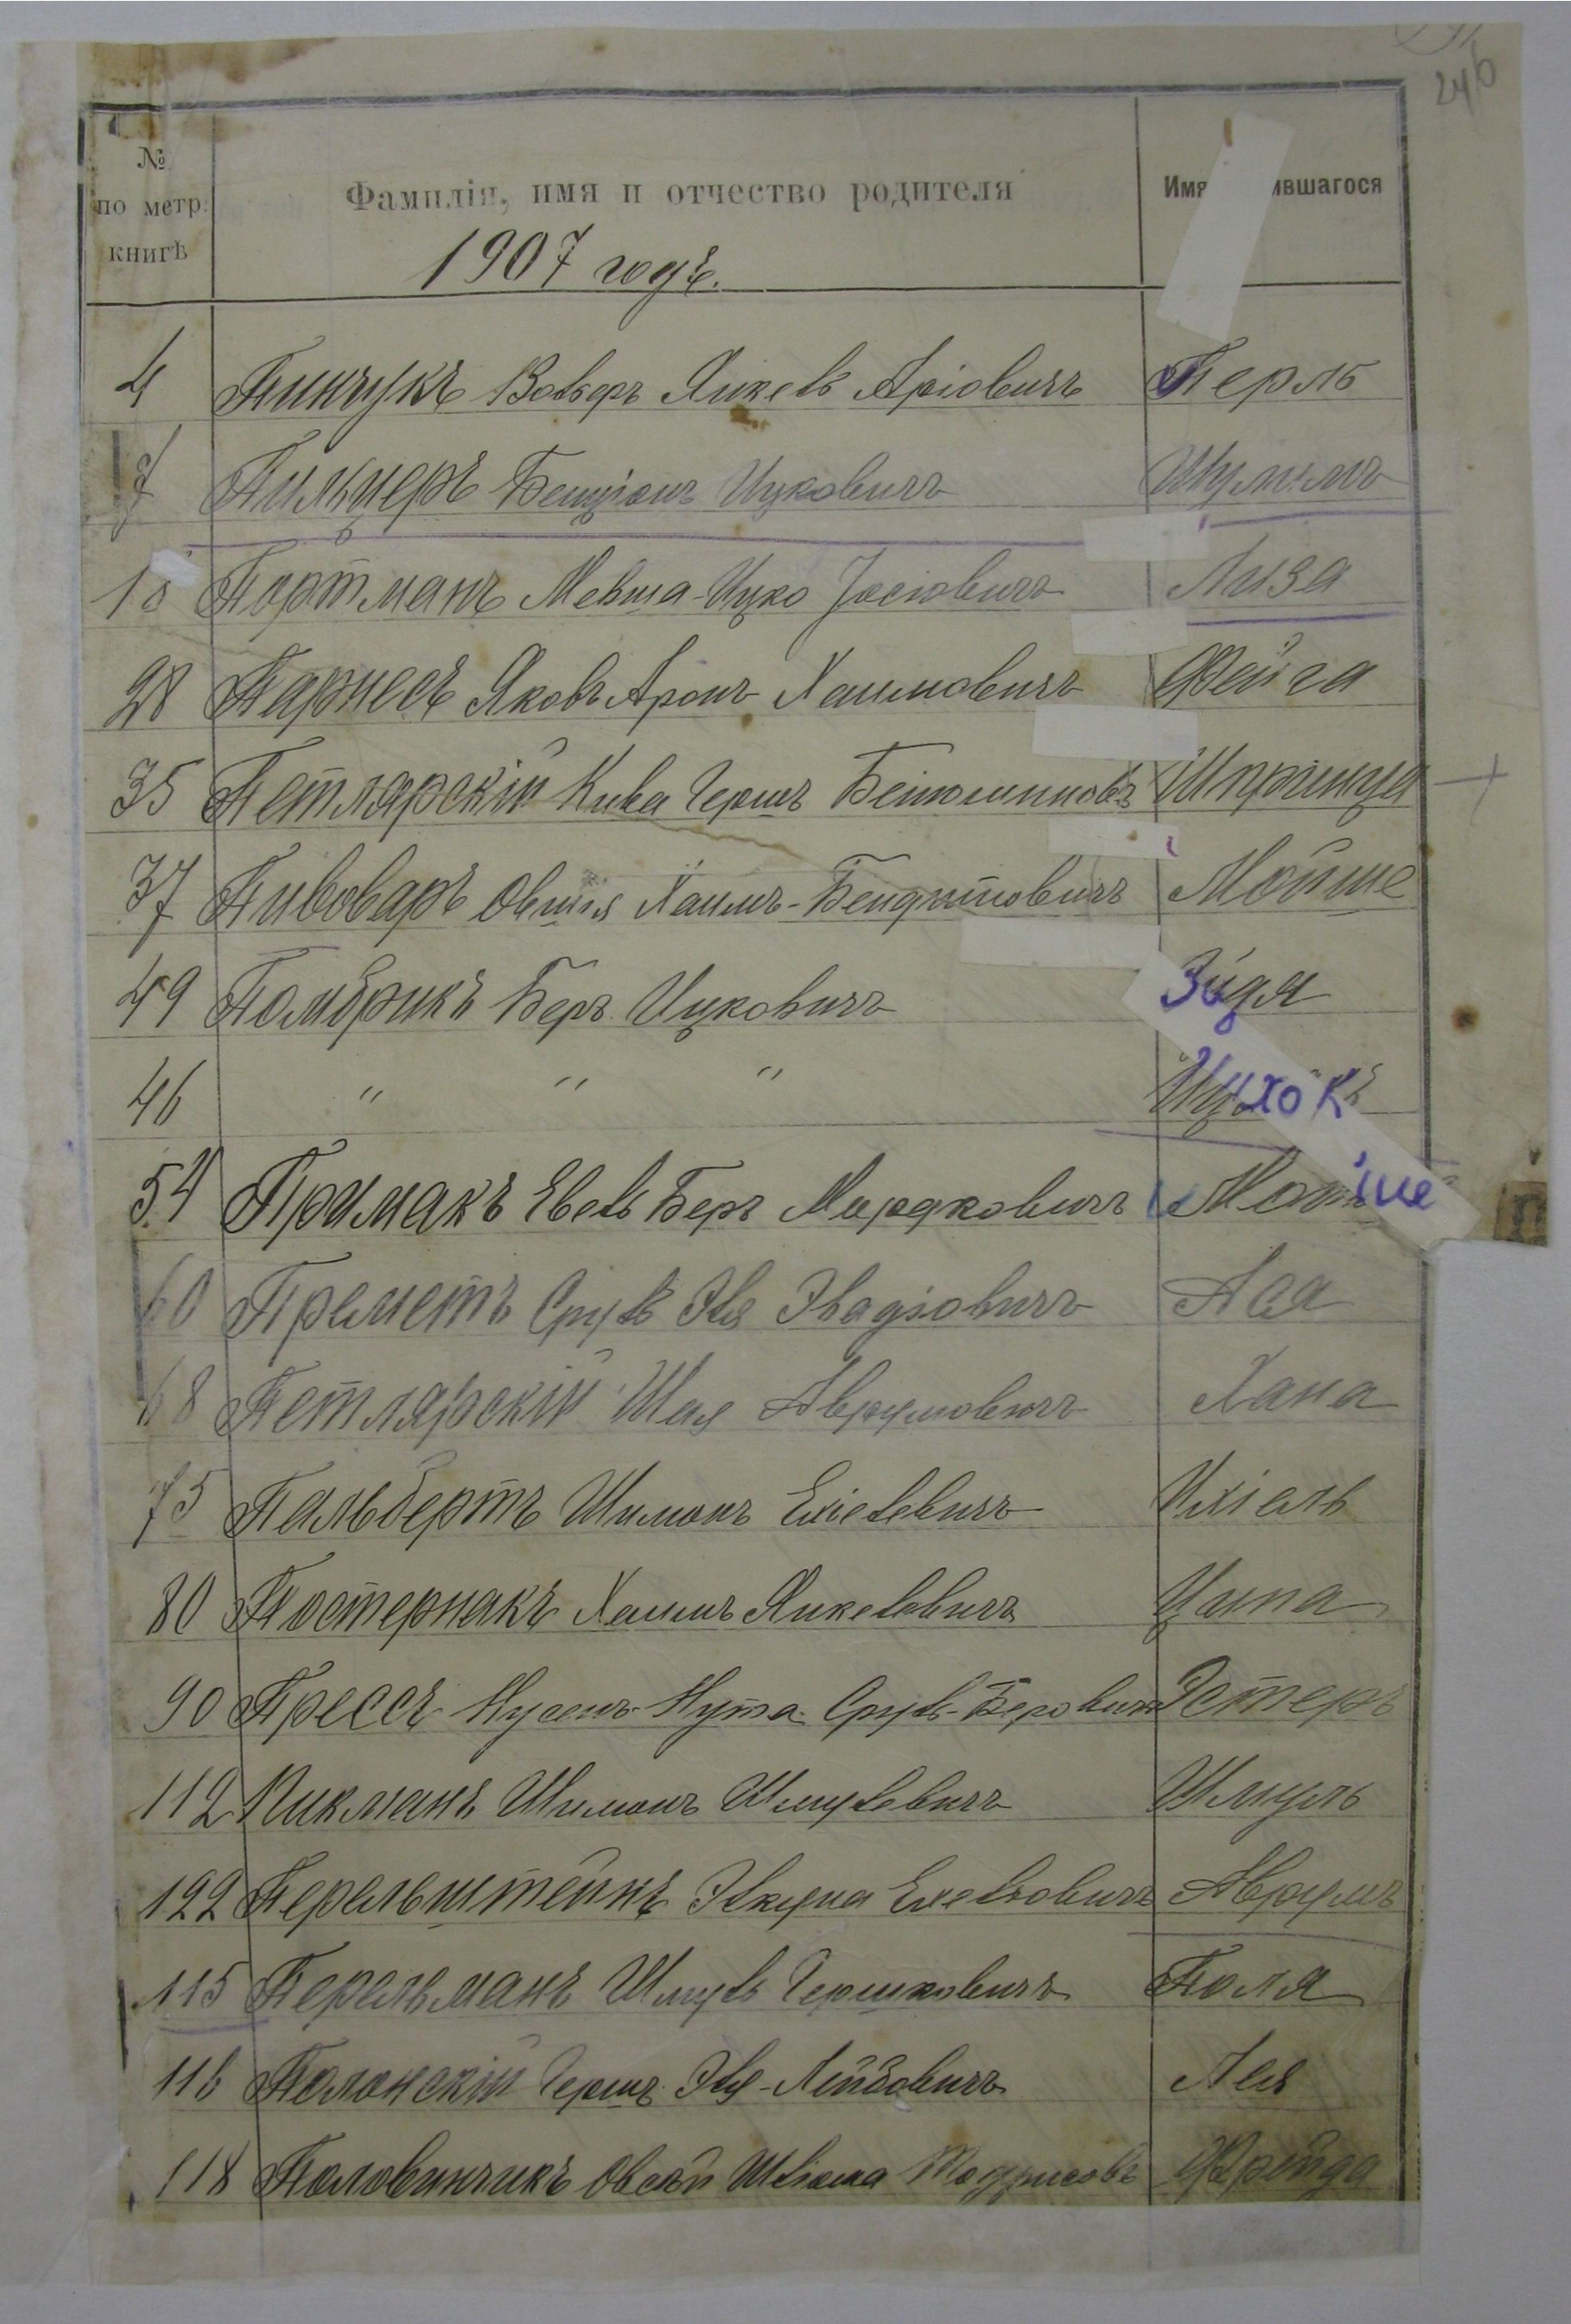 246
№ по метр. книгѣ
Фамилія, имя и отчество родителя
Имя ившагося
1907 годъ.
4 Пинчукъ Вольфъ Янкель Аріовичъ Перль
7 Пильцеръ Бенціонъ Ицковичъ Шулимъ
10 Портманъ Мевша-Ицко Іосіовичъ Лиза
28 Парнесъ Яковъ Аронъ Хаимовичъ Фейга
35 Петлярскій Кива Гершъ Шпринца
37 Пивоваръ Овшія Хаимъ-Бендитовичъ Мойше
49 Помбрикъ Беръ Ицковичъ Зидя
46 " " " Ицхокъ
54 Примакъ Евель Беръ Мордковичъ
60 Преметъ Сруль Эля Эвадіовичъ Ася
68 Петлярскій Шая Аврумовичъ Хана
75 Пальбертъ Шимонъ Ехіелевичъ Ихіель
80 Постернакъ Хаимъ Янкелевичъ Ципа
90 Прессъ Нусенъ-Нута Сруль-Беровичъ Эстеръ
112 Пикманъ Шимонъ Шмулевичъ Шмуль
122 Перельштейнъ Аврумъ
115 Перельманъ Шмуль Гершковичъ Поля
116 Полонскій Гершъ Эля-Лейбовичъ Лея
118 Половинчикъ Овсѣй Шліома Фрейда